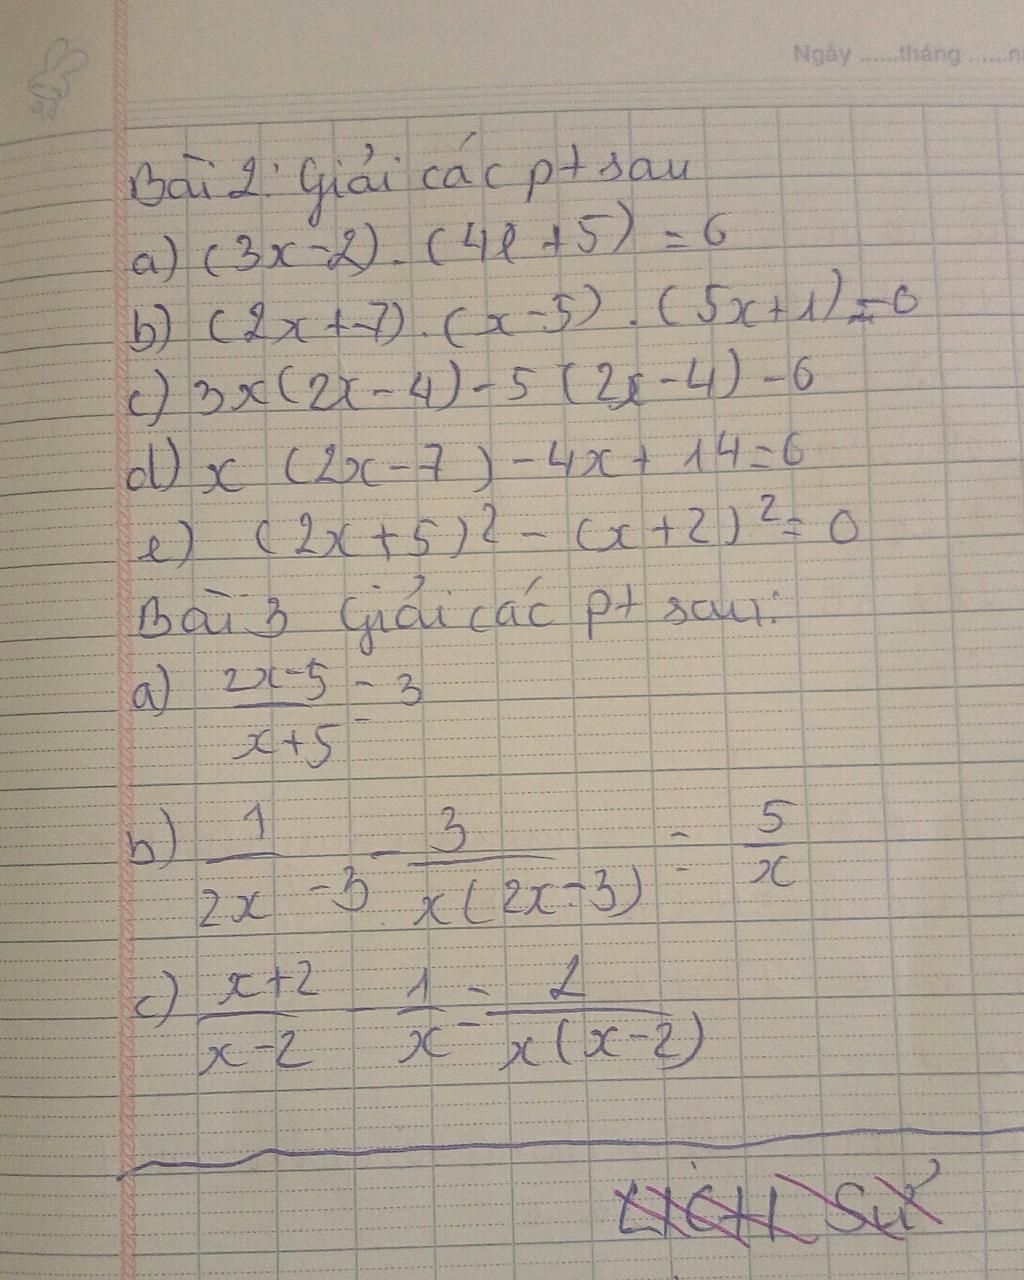 Ngày ......tháng ......n
Bài 2: Giải các pt sau
a) (3x-2).(4x+5)=6
b) (2x+7).(x-5).(5x+1)=0
c) 3x(2x-4)-5(2x-4)-6
d) x (2x-7)-4x+14=6
e) (2x+5)²-(x+2)²=0
Bài 3 Giải các pt sau:
a) (2x-5)/(x+5) = 3
b) 1/(2x-3) - 3/(x(2x-3)) = 5/x
c) (x+2)/(x-2) - 1/x = 2/(x(x-2))
LỊCH Sử